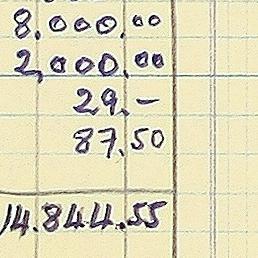 8.000.00
2.000.00
29.-
87.50
14.844.55